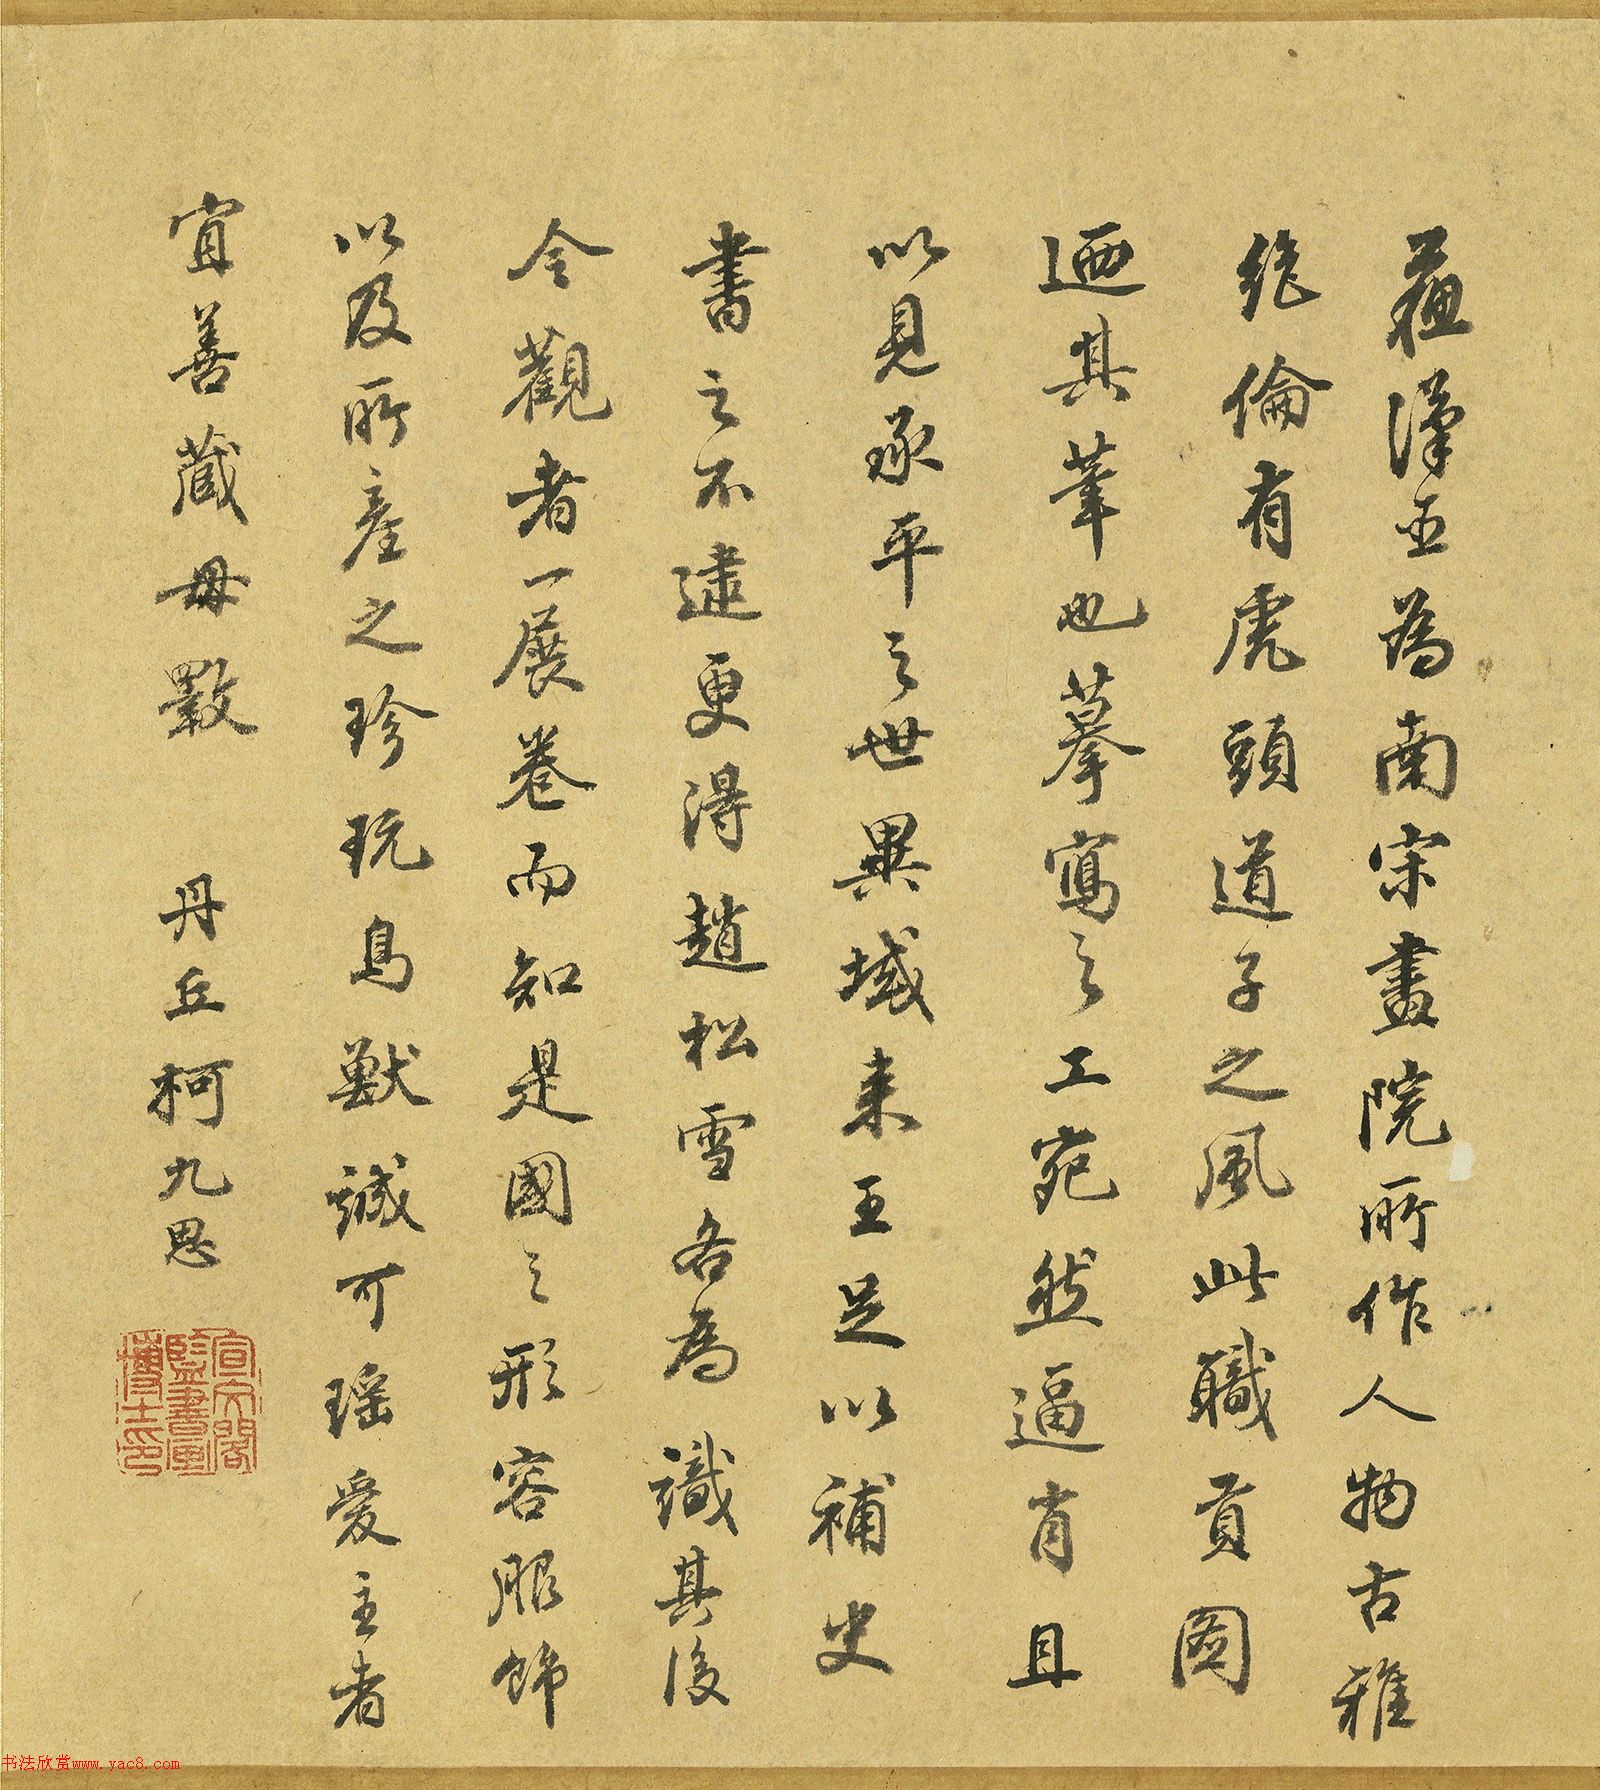 蘇漢臣為南宋畫院所作人物古雅
絕倫有虎頭道子之風此職貢圖
迺其筆也摹寫之工宛然逼肖且
以見承平之世異域来王足以補史
書之不逮更得趙松雪各為識其後
令觀者一展卷而知是國之形容服飾
以及所產之珍玩鳥獸誠可瑶爱主者
宜善藏毋斁 丹丘柯九思
宣文閣
監書畫
博士印
书法欣赏www.yac8.com